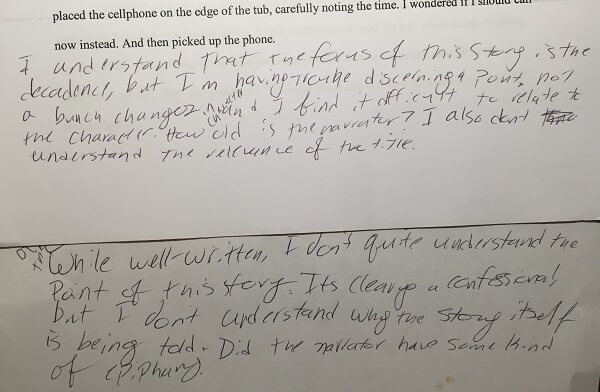 placed the cellphone on the edge of the tub, carefully noting the time. I wondered if I should call
now instead. And then picked up the phone.
I understand that the focus of this story is the
decadence, but I'm having trouble discerning a point, not
a bunch changez and I find it difficult to relate to
the character. How old is the narrator? I also dont
understand the relevance of the title.
While well-written, I don't quite understand the
Point of this story. Its clearly a confessional,
but I dont understand why the story itself
is being told. Did the narrator have some kind
of epiphany.